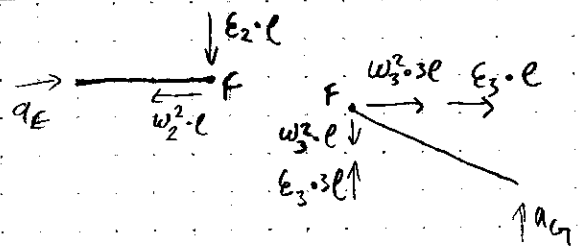 ε₂·ℓ
a_E
F
ω₂²·ℓ
F
ω₃²·3ℓ
ε₃·ℓ
ω₃²·ℓ
ε₃·3ℓ
a_G